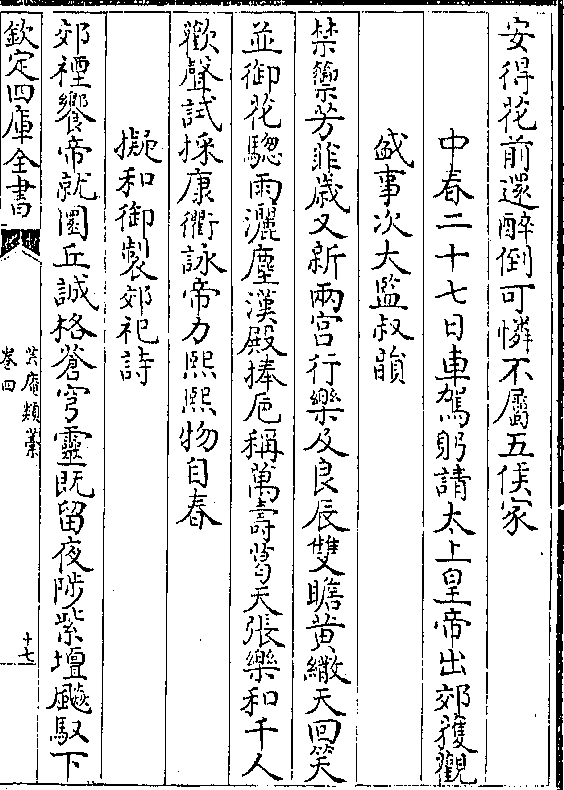 安得花前還醉倒可憐不屬五侯家
中春二十七日車駕躬請太上皇帝出郊獲觀
盛事次大監叔韻
禁籞芳菲歳又新兩宫行樂及良辰雙瞻黄繖天回笑
並御花驄雨灑塵漢殿捧卮稱萬壽葛天張樂和千人
歡聲試採康衢詠帝力熙熙物自春
擬和御製郊祀詩
郊禋饗帝就圜丘誠格蒼穹靈既留夜陟紫壇飈馭下
欽定四庫全書
芸庵類藳
卷四
十七